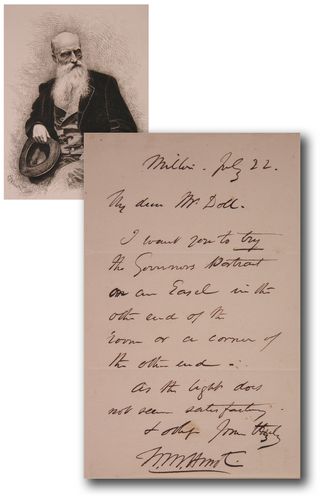 Milton. July 22.
My dear Mr Doll.
I want you to try
the Governors Portrait
on an Easel in the
othe end of the
room or a corner of
the othe end -
As the light does
not seem satisfactory.
Yours
W. M. Hunt.